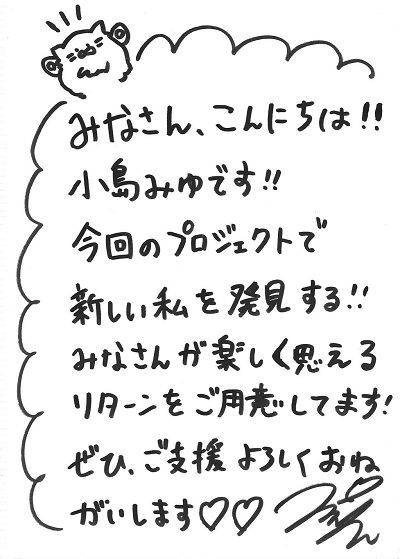 みなさん、こんにちは!!
小島みゆです!!
今回のプロジェクトで
新しい私を発見する!!
みなさんが楽しく思える
リターンをご用意してます!
ぜひ、ご支援よろしくおね
がいします♡♡